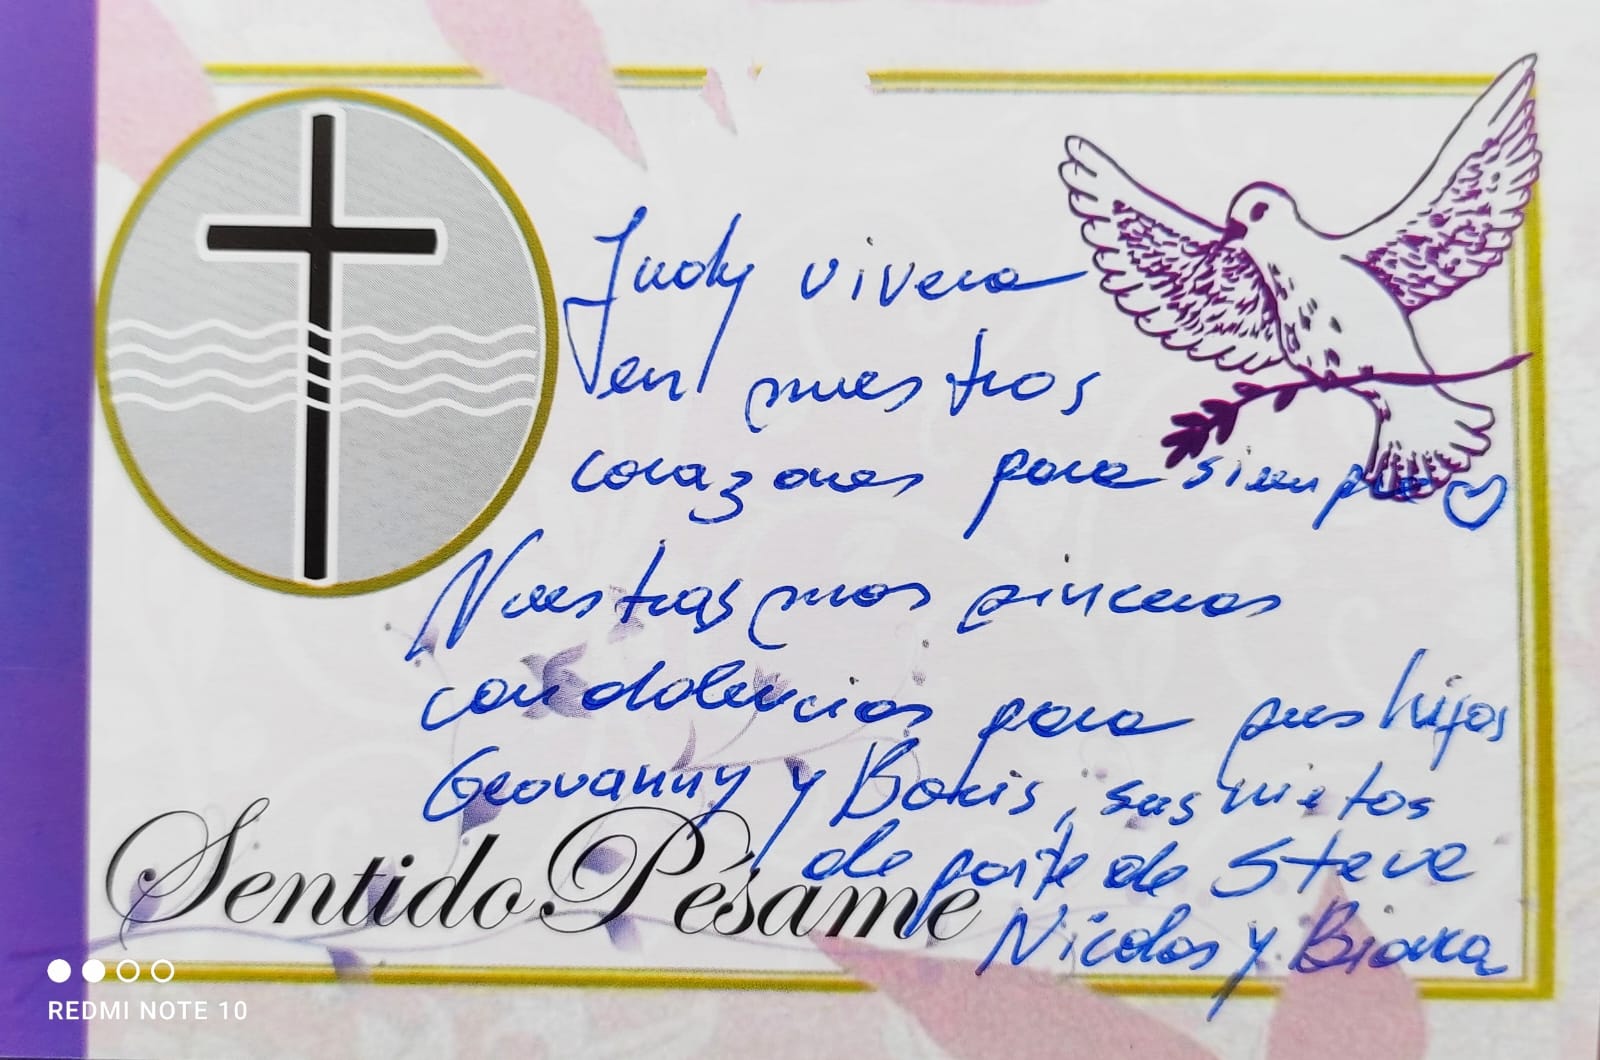 Judy vivera
en nuestros
corazones para siempre ♡
Nuestras mas sinceras
condolencias para sus hijos
Geovanny y Boris, sus nietos
de parte de Steve
Nicolas y Bianca
Sentido Pésame
REDMI NOTE 10